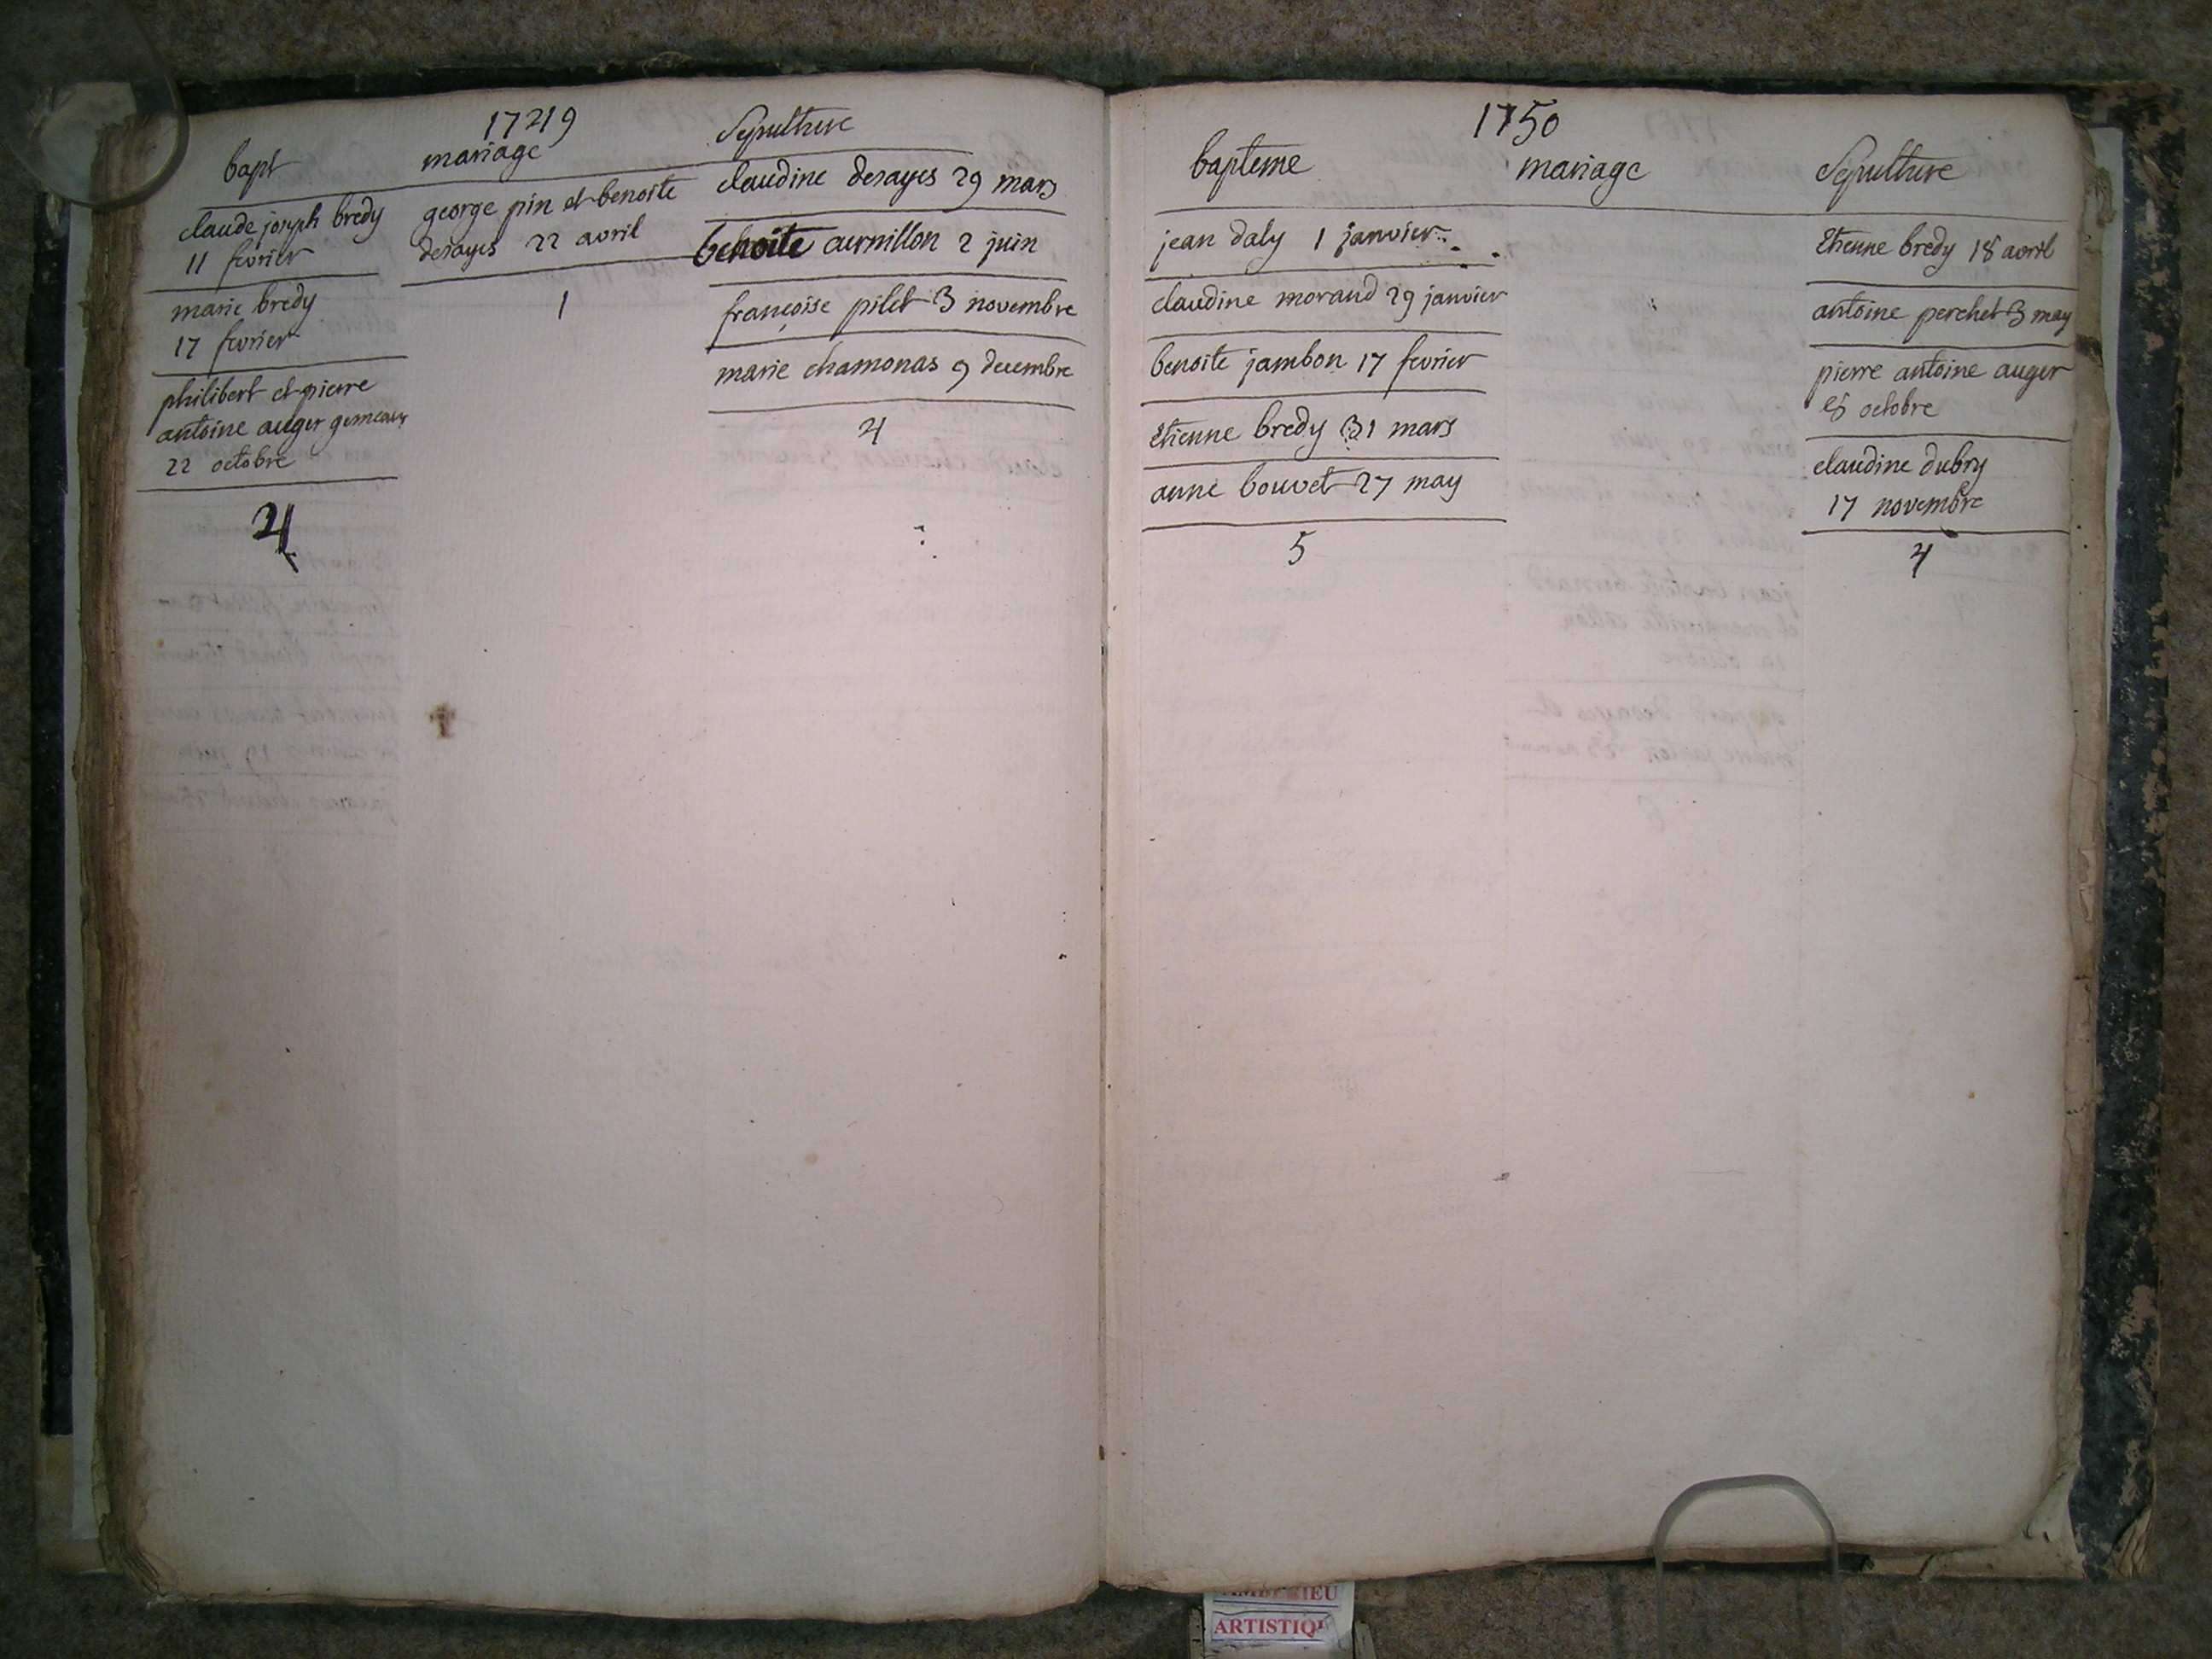 1749
bapt
claude joseph bredy
11 fevrier
marie bredy
17 fevrier
philibert et pierre
antoine auger gemeaux
22 octobre
4
mariage
george pin et benoite
desayes 22 avril
1
Sepulture
claudine desayes 29 mars
benoite aurnillon 2 juin
françoise pilet 3 novembre
marie chamonas 9 decembre
4
1750
bapteme
jean daly 1 janvier
claudine morand 29 janvier
benoite jambon 17 fevrier
Etienne bredy 31 mars
anne bouvet 27 may
5
mariage
Sepulture
Etienne bredy 18 avril
antoine perchet 3 may
pierre antoine auger
octobre
claudine dubry
17 novembre
4
ARTISTIQ